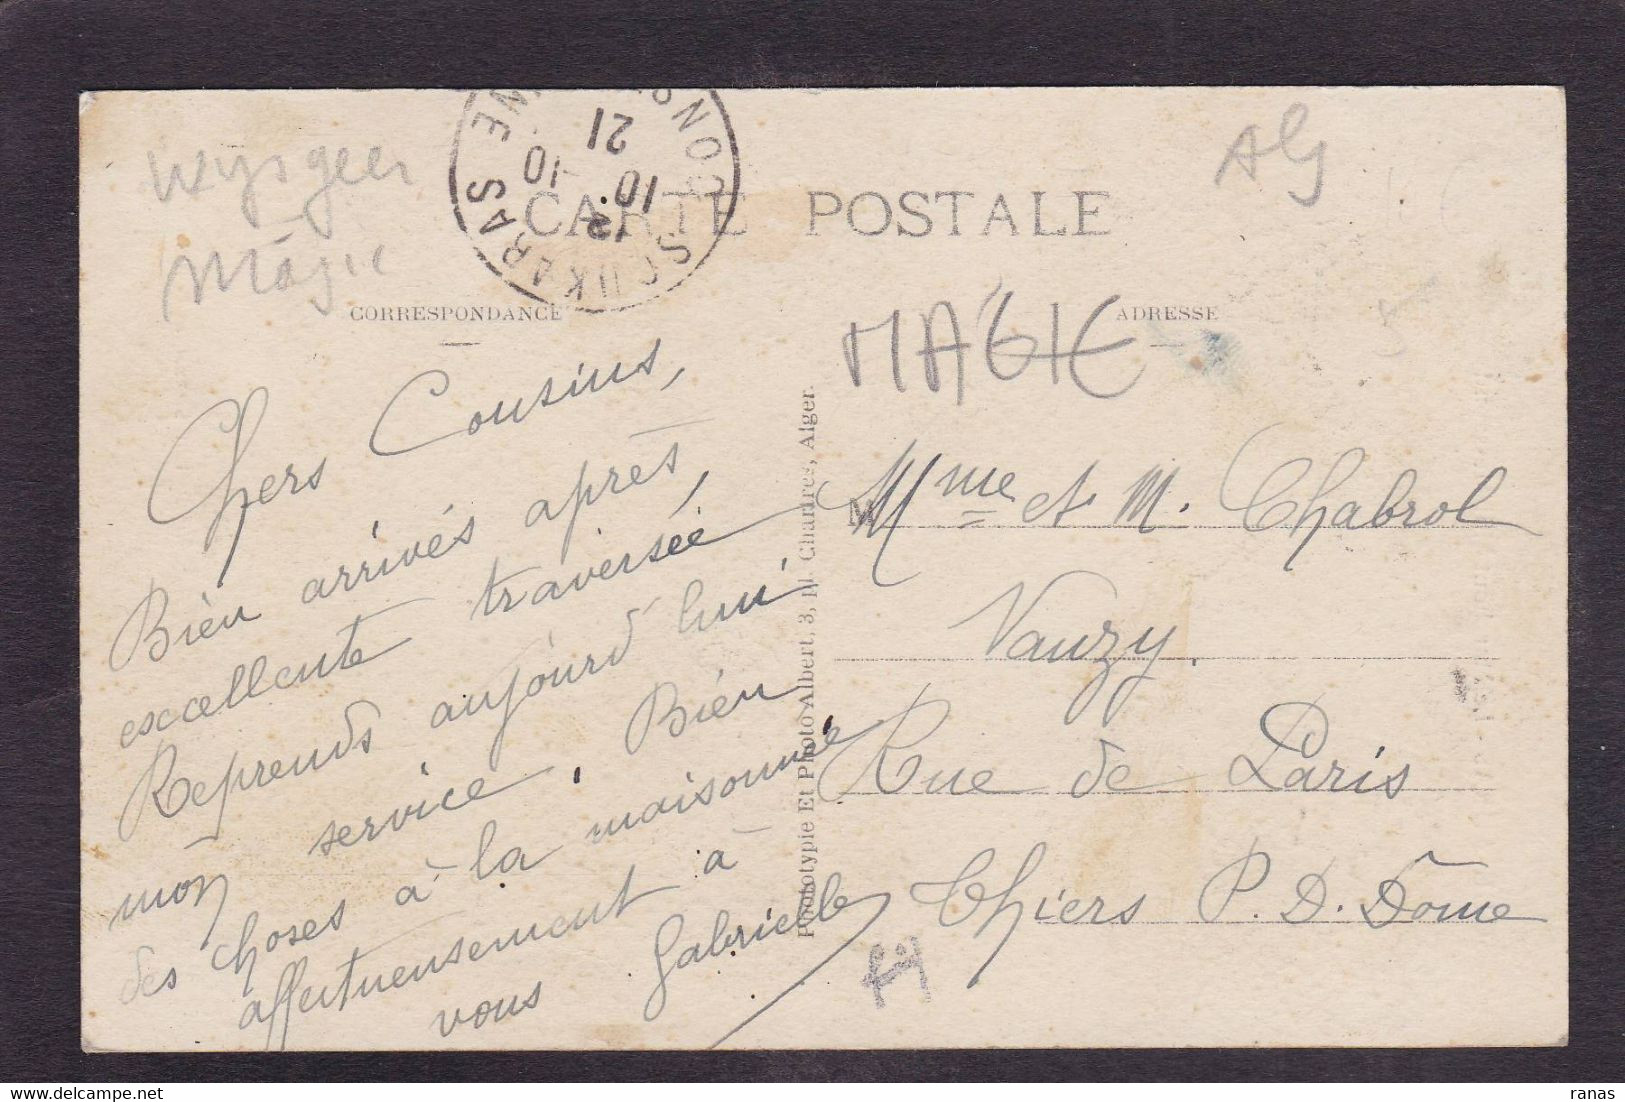 Wysgeer
Mágie
AG
SOUKARAS CONSNE
12
10 -10
21
CARTE POSTALE
CORRESPONDANCE
ADRESSE
MAGIE
Chers Cousins,
Bien arrivés après
excellente traversée,
Reprends aujourd'hui
mon service. Bien
des choses à la maisonnée
affectueusement à
vous Gabrielle
Phototypie Et Photo Albert, 3, Chartres, Alger
M
Mme et M. Chabrol
Vauzy.
Rue de Paris
Thiers P. D. Dôme
ranas